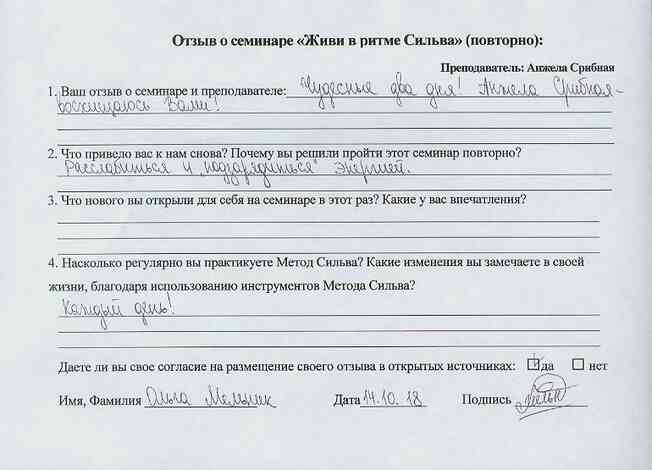 Отзыв о семинаре «Живи в ритме Сильва» (повторно):
Преподаватель: Анжела Срибная
1. Ваш отзыв о семинаре и преподавателе: Чудесные два дня! Анжела Срибная-
восхищаюсь Вами!
2. Что привело вас к нам снова? Почему вы решили пройти этот семинар повторно?
Расслабиться и „подзарядиться" энергией.
3. Что нового вы открыли для себя на семинаре в этот раз? Какие у вас впечатления?
4. Насколько регулярно вы практикуете Метод Сильва? Какие изменения вы замечаете в своей
жизни, благодаря использованию инструментов Метода Сильва?
Каждый день!
Даете ли вы свое согласие на размещение своего отзыва в открытых источниках: да нет
Имя, Фамилия Ольга Мельник Дата 14.10.18 Подпись